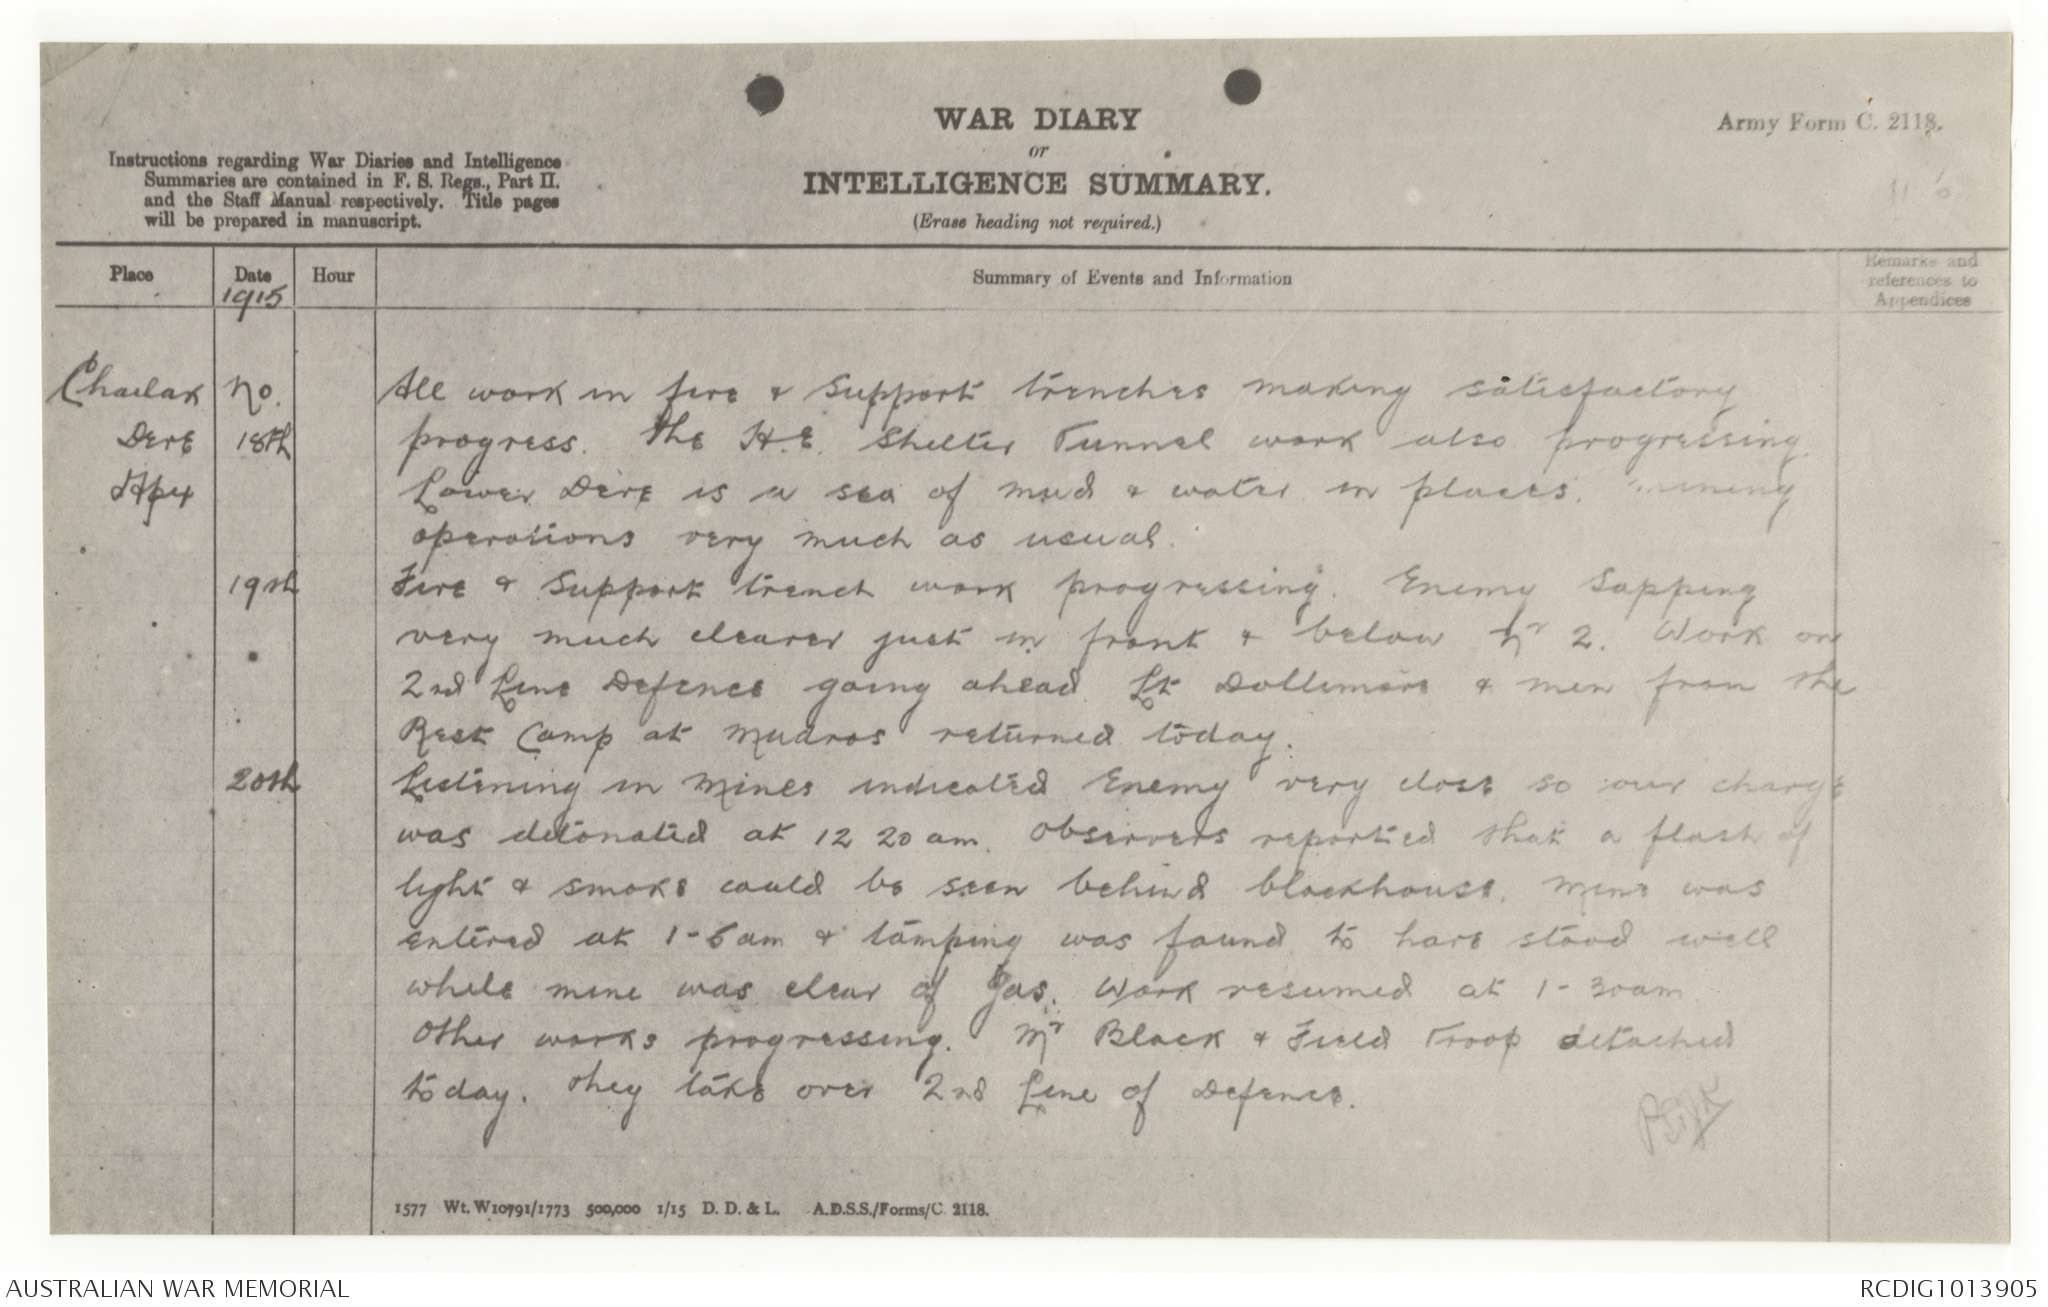 WAR DIARY
or
INTELLIGENCE SUMMARY.
(Erase heading not required.)
Army Form C. 2118.
Instructions regarding War Diaries and Intelligence
Summaries are contained in F. S. Regs., Part II.
and the Staff Manual respectively. Title pages
will be prepared in manuscript.
Place
Date
1915
Hour
Summary of Events and Information
Remarks and
references to
Appendices
Chailak No. All work in fire & Support trenches making satisfactory
Dere 18th progress. The H.E. Shelter Tunnel work also progressing.
Apex Lower Dere is a sea of mud & water in places. Mining
operations very much as usual.
19th Fire & Support trench work progressing. Enemy Sapping
very much clearer just in front & below Nr 2. Work on
2nd Line Defence going ahead Lt Dollimore & men from the
Rest Camp at Mudros returned today.
20th Listening in Mines indicated Enemy very close so our charge
was detonated at 12 20 am. Observers reported that a flash of
light & smoke could be seen behind blockhouse. Mine was
entered at 1-5 am & tamping was found to have stood well
while mine was clear of gas. Work resumed at 1-30am
Other works progressing. Mr Black & Field Troop detached
today. They take over 2nd Line of Defence.
1577 Wt. W10791/1773 500,000 1/15 D. D. & L. A.D.S.S./Forms/C. 2118.
AUSTRALIAN WAR MEMORIAL
RCDIG1013905